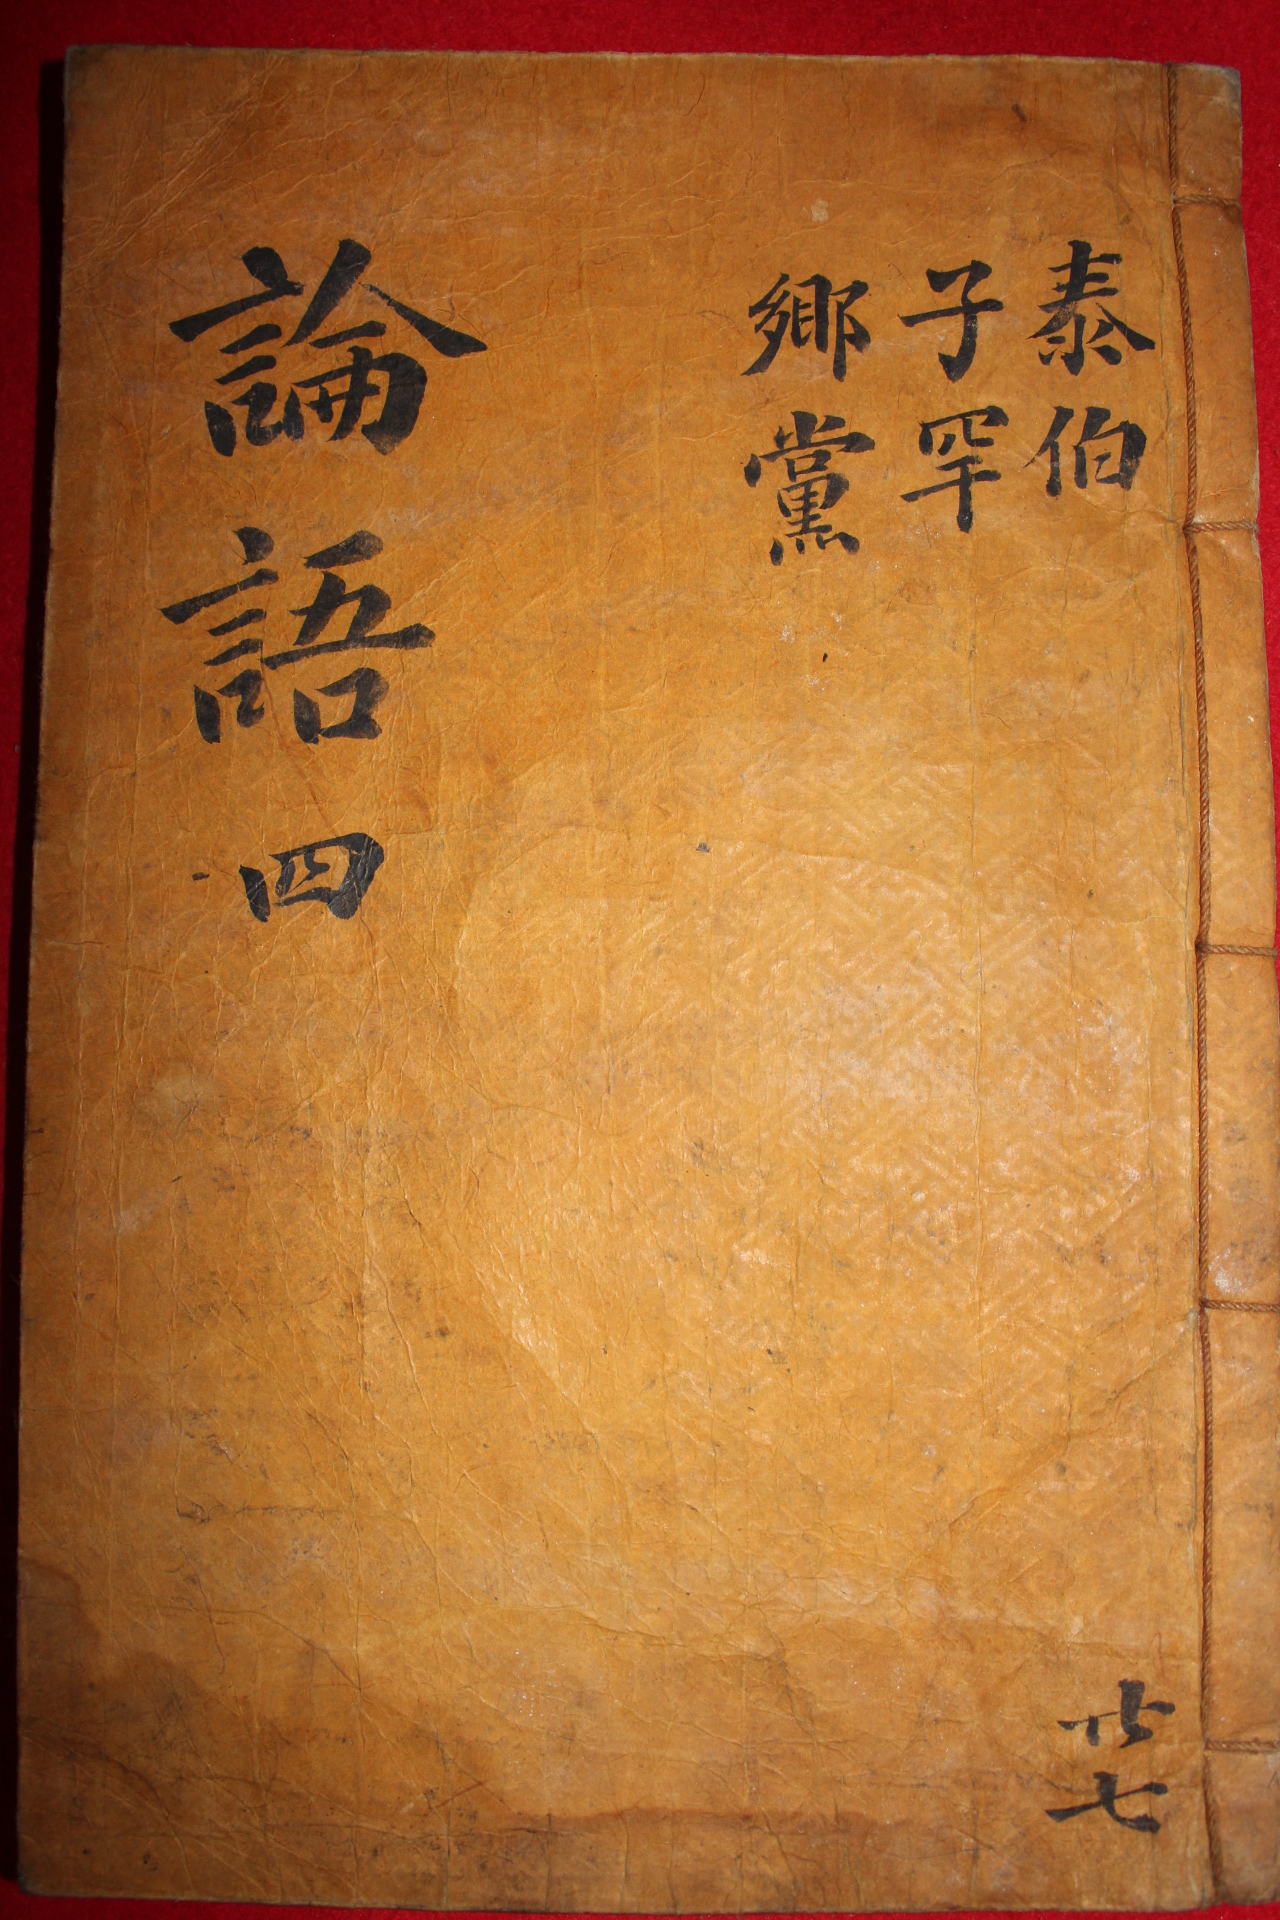 泰伯
子罕
鄕黨
論語 四
共七